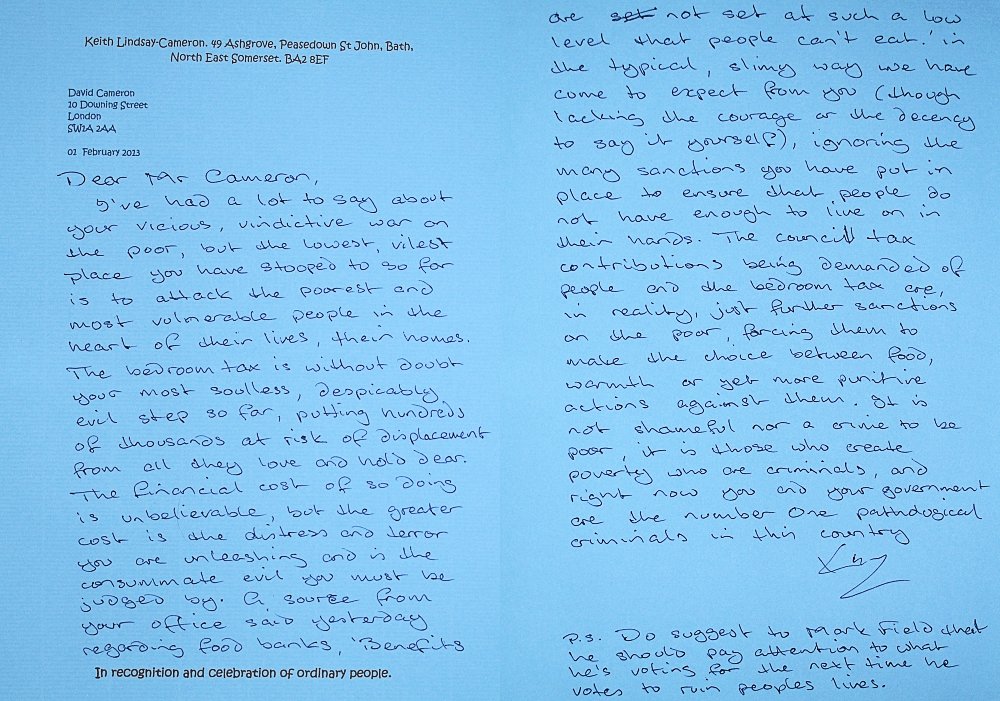 Keith Lindsay-Cameron. 49 Ashgrove, Peasedown St John, Bath,
North East Somerset. BA2 8EF
David Cameron
10 Downing Street
London
SW1A 2AA
01 February 2013
Dear Mr Cameron,
I've had a lot to say about
your vicious, vindictive war on
the poor, but the lowest, vilest
place you have stooped to so far
is to attack the poorest and
most vulnerable people in the
heart of their lives, their homes.
The bedroom tax is without doubt
your most soulless, despicably
evil step so far, putting hundreds
of thousands at risk of displacement
from all they love and hold dear.
The financial cost of so doing
is unbelievable, but the greater
cost is the distress and terror
you are unleashing and is the
consummate evil you must be
judged by. A source from
your office said yesterday
regarding food banks, 'Benefits
In recognition and celebration of ordinary people.
are set not set at such a low
level that people can't eat.' in
the typical, slimy way we have
come to expect from you (though
lacking the courage or the decency
to say it yourself), ignoring the
many sanctions you have put in
place to ensure that people do
not have enough to live on in
their hands. The council tax
contributions being demanded of
people and the bedroom tax are,
in reality, just further sanctions
on the poor, forcing them to
make the choice between food,
warmth or yet more punitive
actions against them. It is
not shameful nor a crime to be
poor, it is those who create
poverty who are criminals, and
right now you and your government
are the number one pathological
criminals in this country
P.S. Do suggest to Mark Field that
he should pay attention to what
he's voting for the next time he
votes to ruin peoples lives.